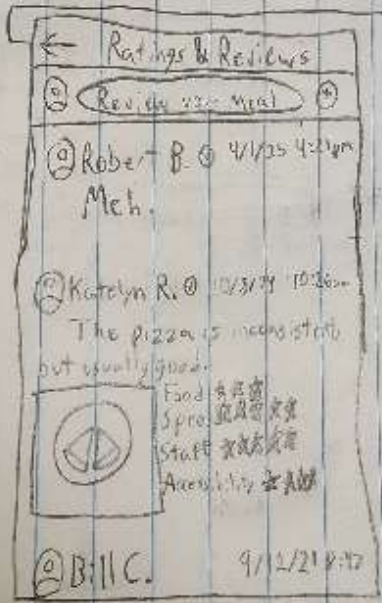 Ratings & Reviews
Review your Meal
Robert B. 4/1/25 4:21pm
Meh.
Katelyn R.
The pizza is inconsistent
but usually good.
Food
Staff
Accessibility
Bill C. 9/12/21